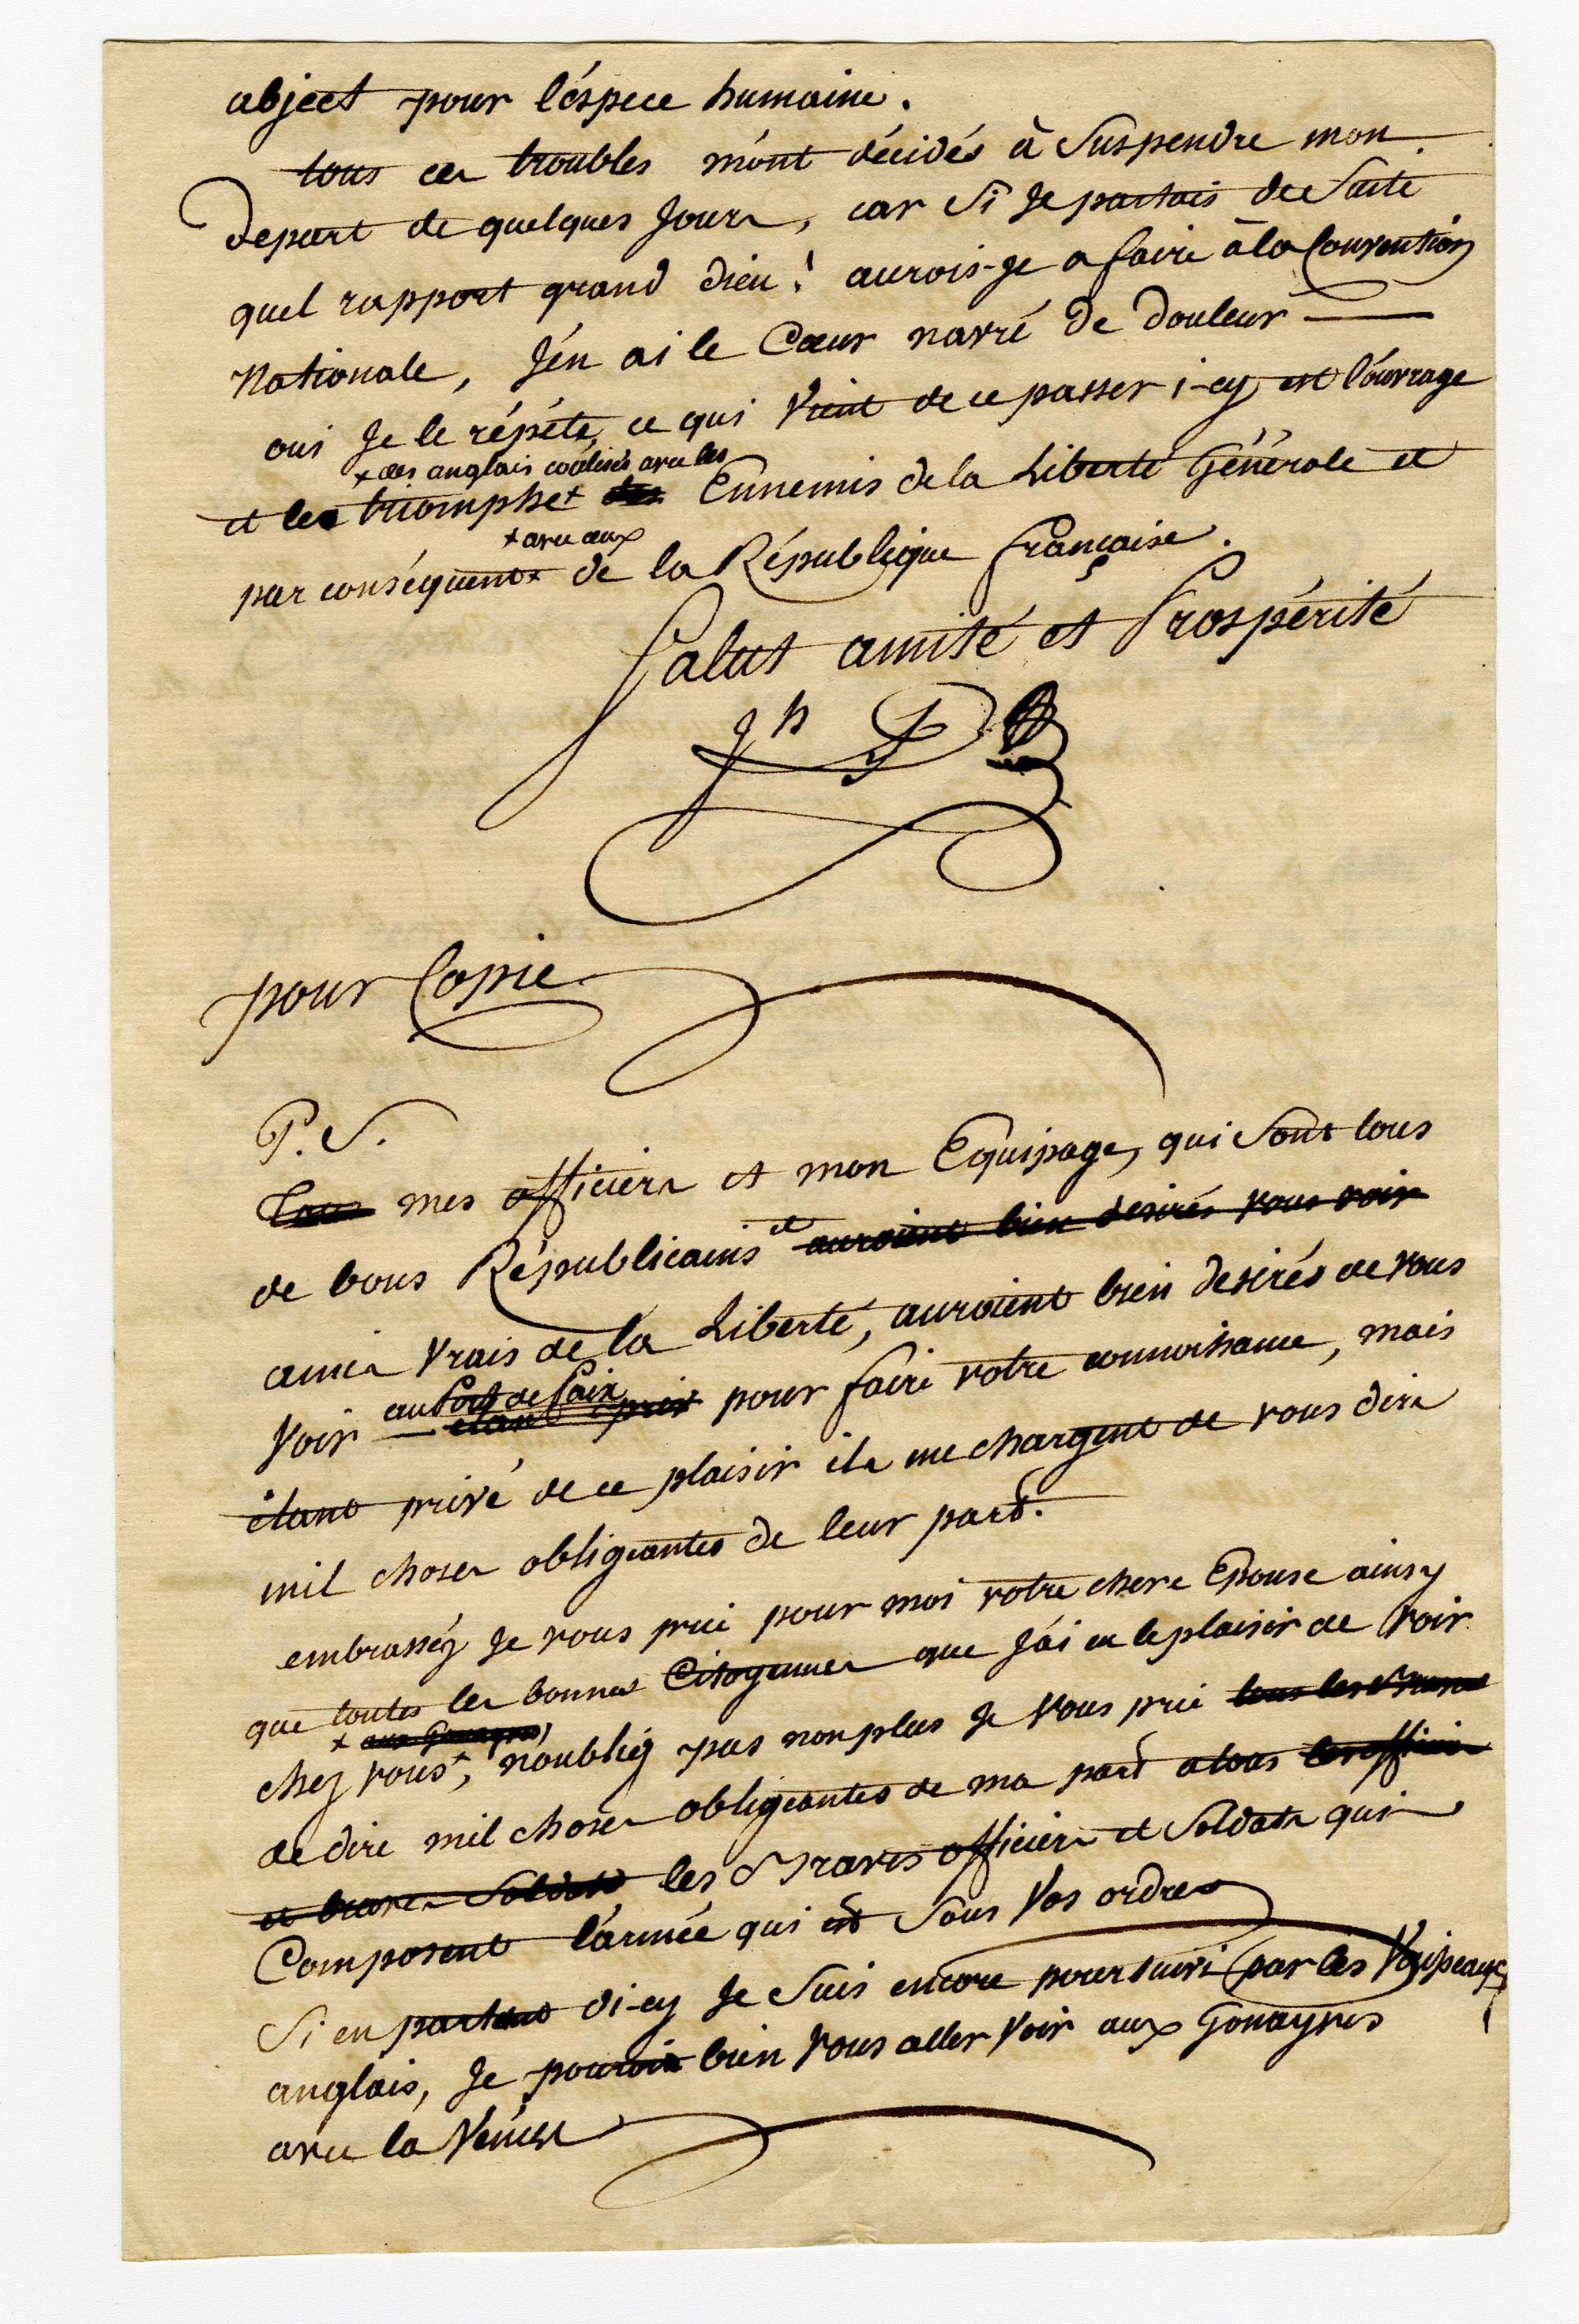 abject pour l'éspece humaine.
tous ces troubles m'ont décidés à Suspendre mon
Depart de quelques Jours, car Si Je partais de Suite
quel rapport grand Dieu! aurois-je a faire à la Convention
Nationale, J'én ai le Cœur navré de douleur —
oui Je le répéte, ce qui Vient de ce passer i-cy est l'ouvrage
+ des anglais coalisés avec les
et le triomphe+ des Ennemis de la Liberté Générale et
+ avec eux
par conséquent+ de la République française.
Salut amitié et Prospérité
Jh
pour Copie
P. S.
Tous mes officiers et mon Equipage, qui Sont tous
de bons Républicains et auroient bien desirés vous voir
amis Vrais de la Liberté, auroient bien desirés de vous
au Port de Paix
Voir — etant privé pour faire votre connoissance, mais
étant privé de ce plaisir ils me chargent de vous dire
mil choses obligeantes de leur part.
embrassés Je vous prie pour moi votre chere Epouse ainsy
que toutes les bonnes Citoyennes que J'ái eu le plaisir de Voir
+ aux Gonayves,
chez vous+, n'oubliez pas non plus Je Vous prie tous les braves
de dire mil choses obligeantes de ma part a tous les officiers
et braves Soldats les Braves officiers et Soldats qui
Composent l'armée qui est Sous Vos ordres
Si en partant d'i-cy Je Suis encore poursuivi par les Vaisseaux
anglais, Je pourois bien Vous aller Voir aux Gonayves
avec la Vénus